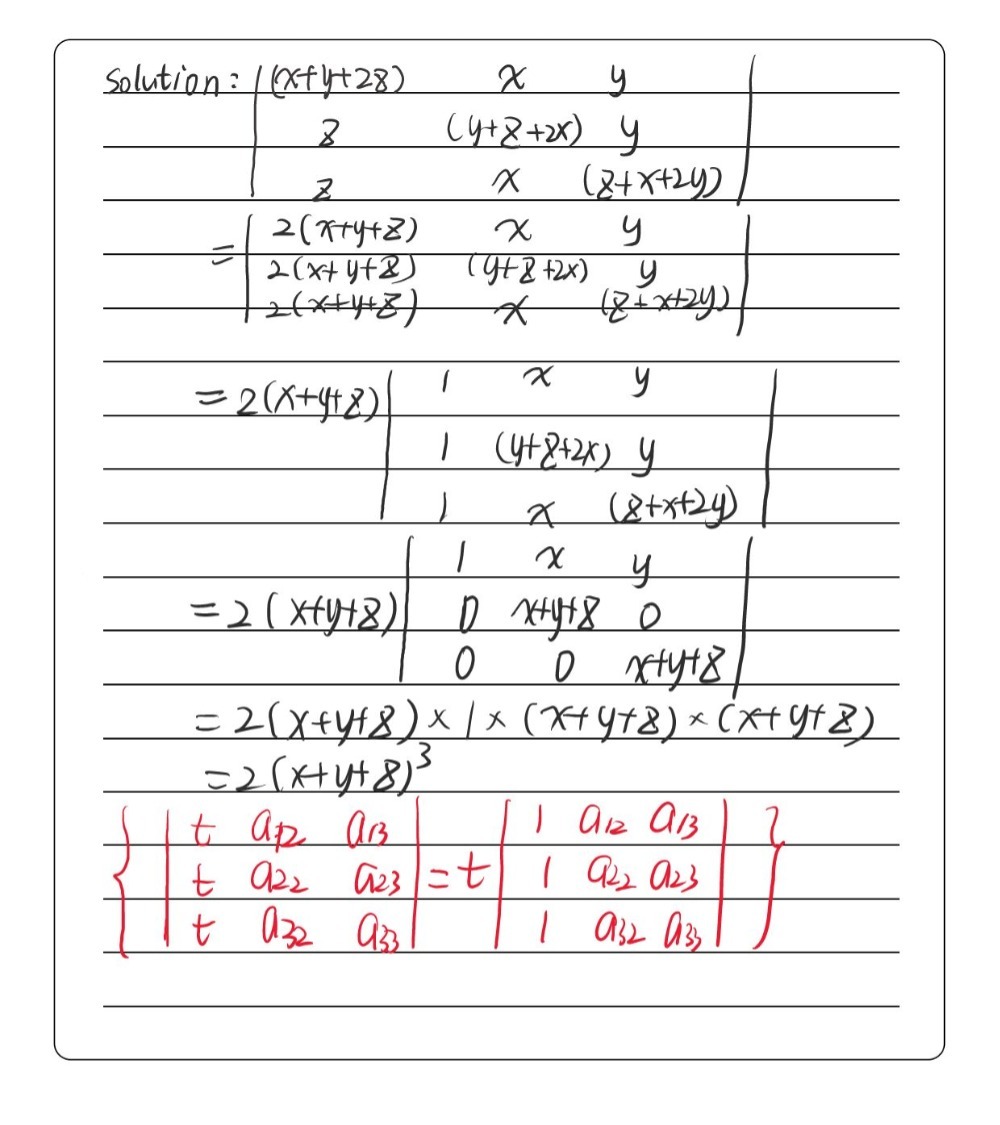 Solution: | (x+y+2z) x y |
| z (y+z+2x) y |
| z x (z+x+2y) |
= | 2(x+y+z) x y |
| 2(x+y+z) (y+z+2x) y |
| 2(x+y+z) x (z+x+2y) |
= 2(x+y+z) | 1 x y |
| 1 (y+z+2x) y |
| 1 x (z+x+2y) |
= 2(x+y+z) | 1 x y |
| 0 x+y+z 0 |
| 0 0 x+y+z |
= 2(x+y+z) × 1 × (x+y+z) × (x+y+z)
= 2(x+y+z)³
{ | t a₁₂ a₁₃ | = t | 1 a₁₂ a₁₃ | }
| t a₂₂ a₂₃ | | 1 a₂₂ a₂₃ |
| t a₃₂ a₃₃ | | 1 a₃₂ a₃₃ |